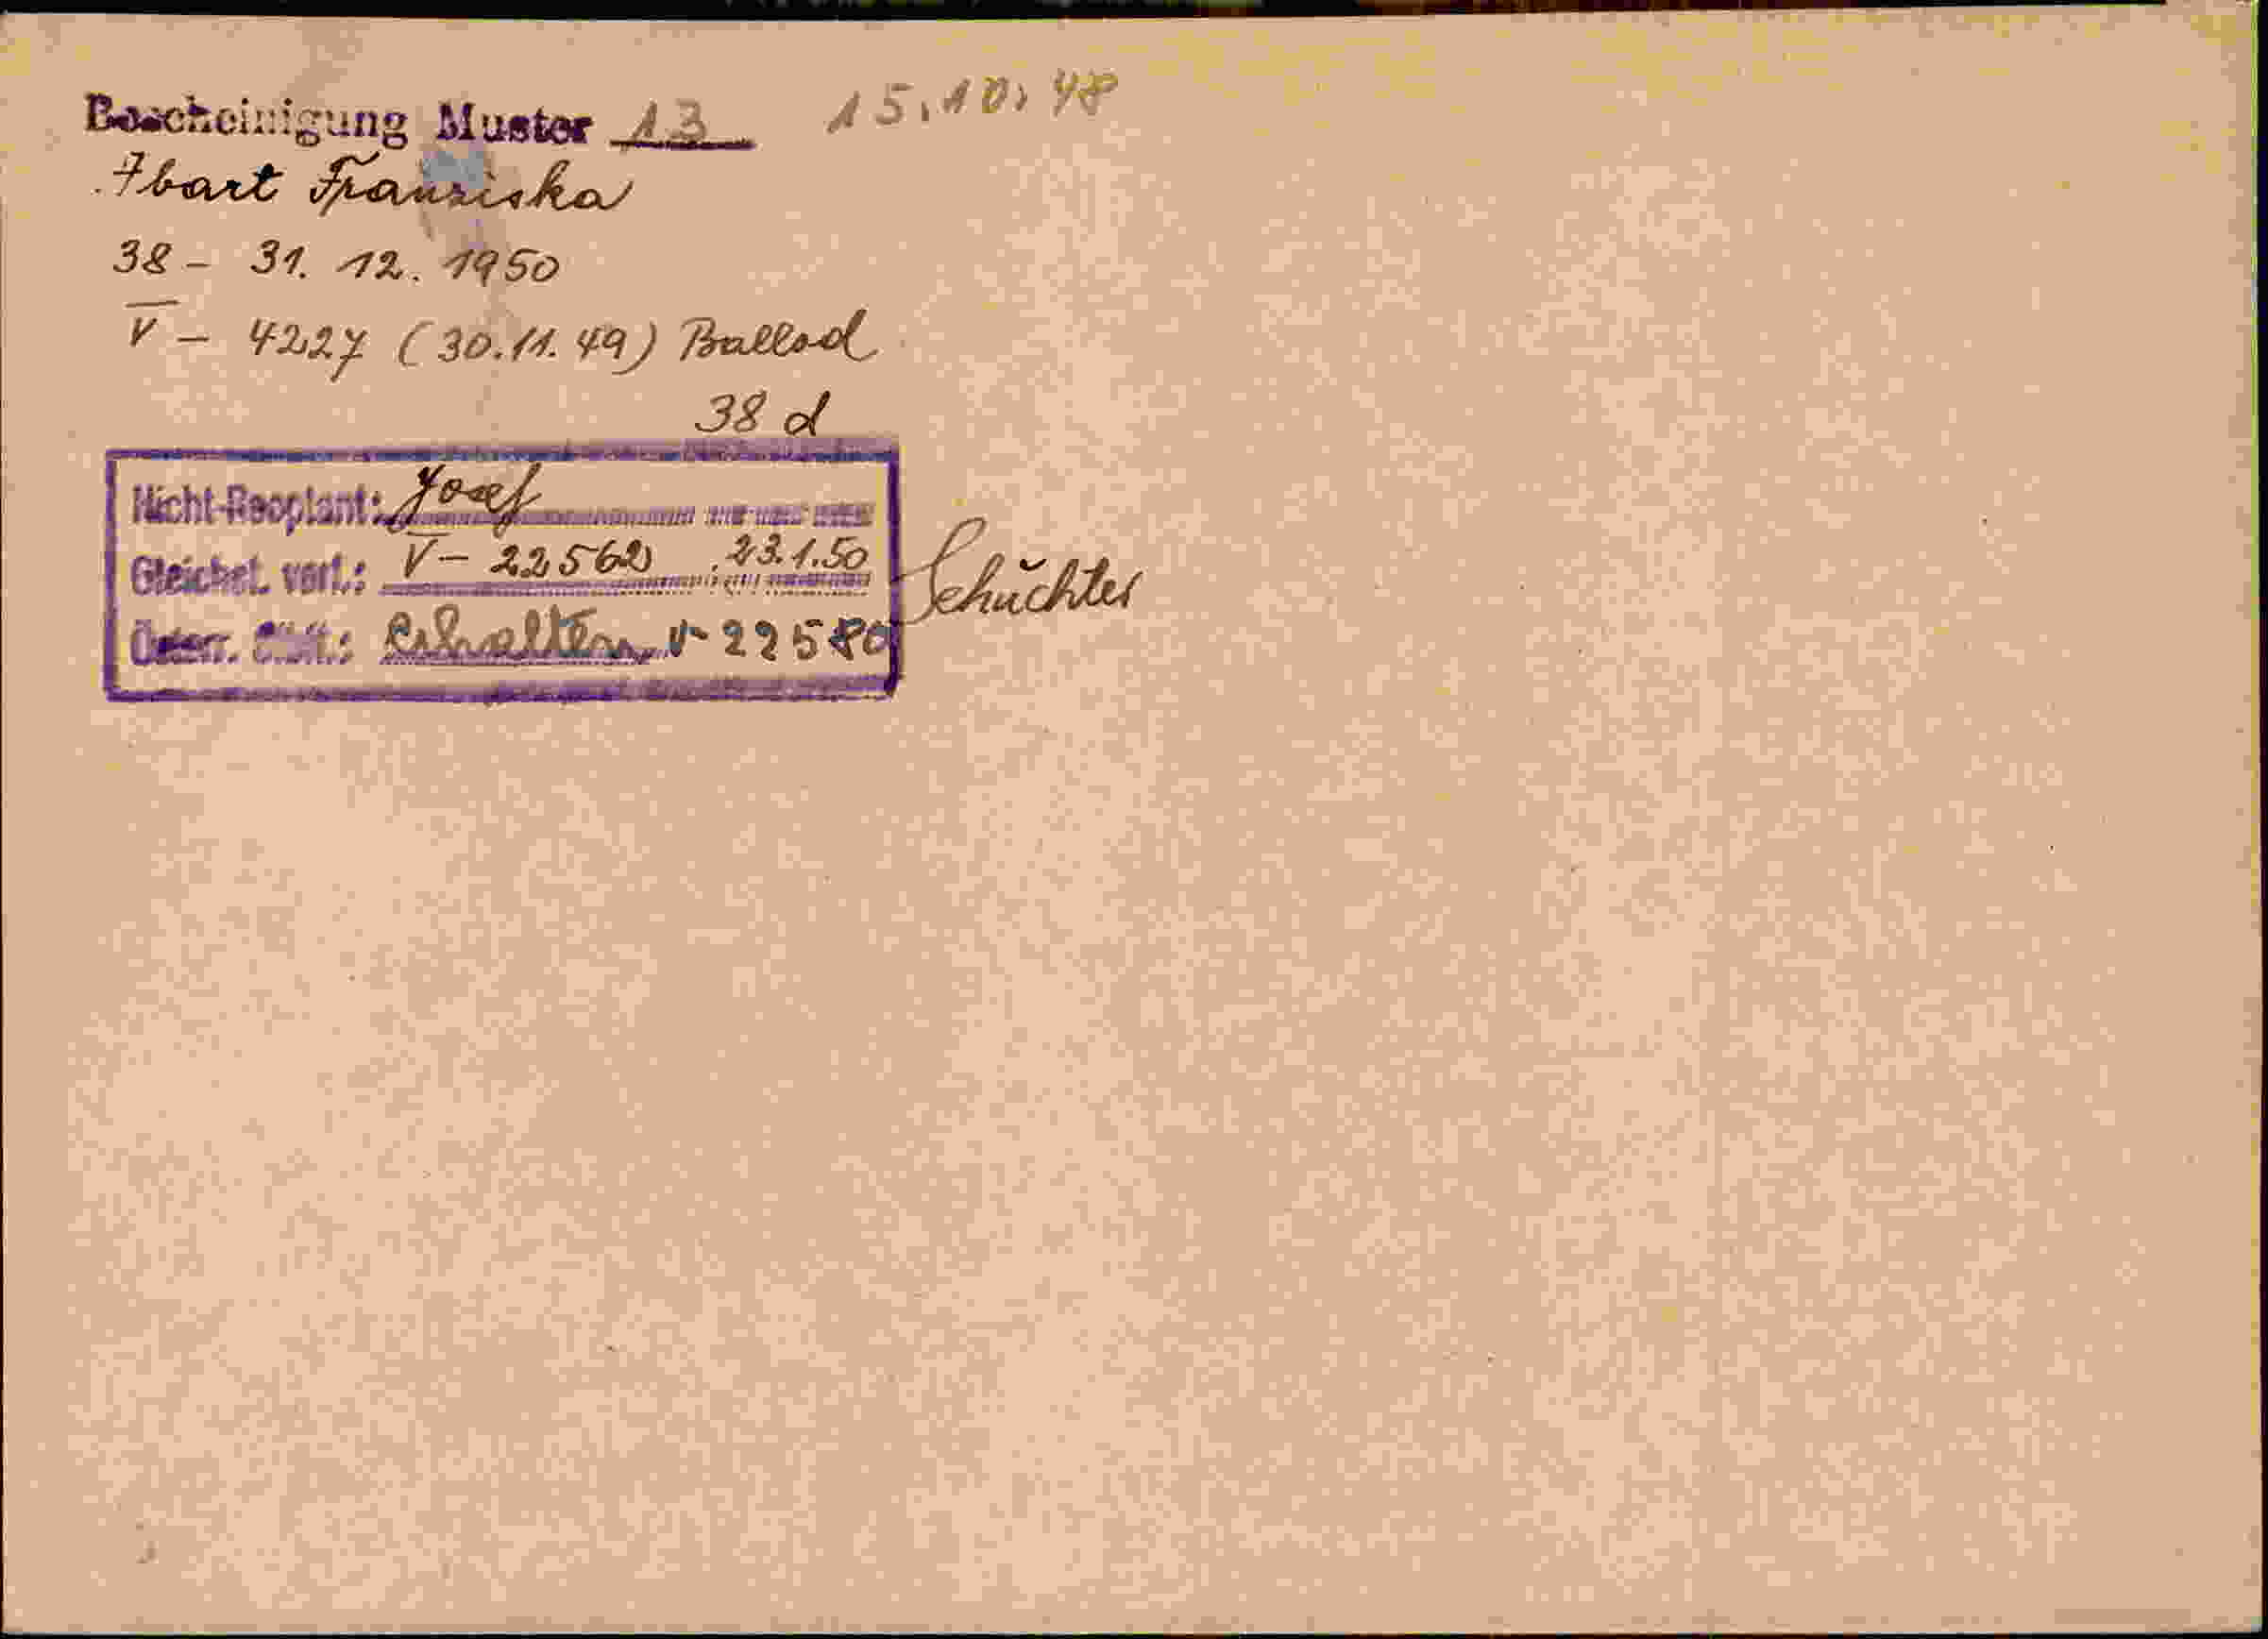 Bescheinigung Muster 13 15.10.48
Abart Franziska
38 - 31. 12. 1950
V - 4227 (30.11.49) Ballod
38 d
Nicht-Reoptant: Josef
Gleichst. verl.: V - 22560 23.1.50 Schuchter
Österr. erhalten V-22580